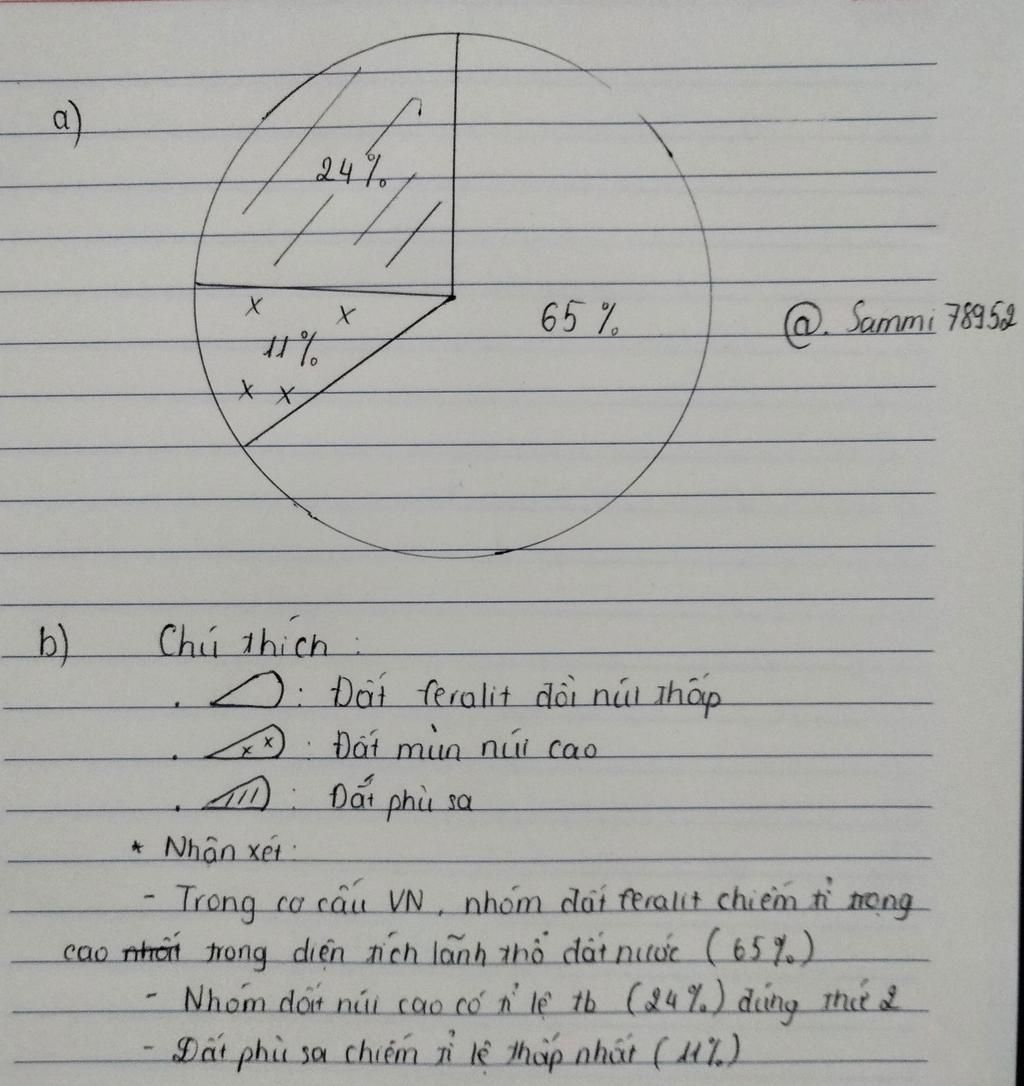 a)
24%
65%
@. Sammi 78952
11%
b) Chú thích :
. : Đất feralit đồi núi thấp
. : Đất mùn núi cao
. : Đất phù sa
* Nhận xét:
- Trong cơ cấu VN, nhóm đất feralit chiếm tỉ trọng
cao nhất trong diện tích lãnh thổ đất nước (65%)
- Nhóm đất núi cao có tỉ lệ tb (24%) đứng thứ 2
- Đất phù sa chiếm tỉ lệ thấp nhất (11%)